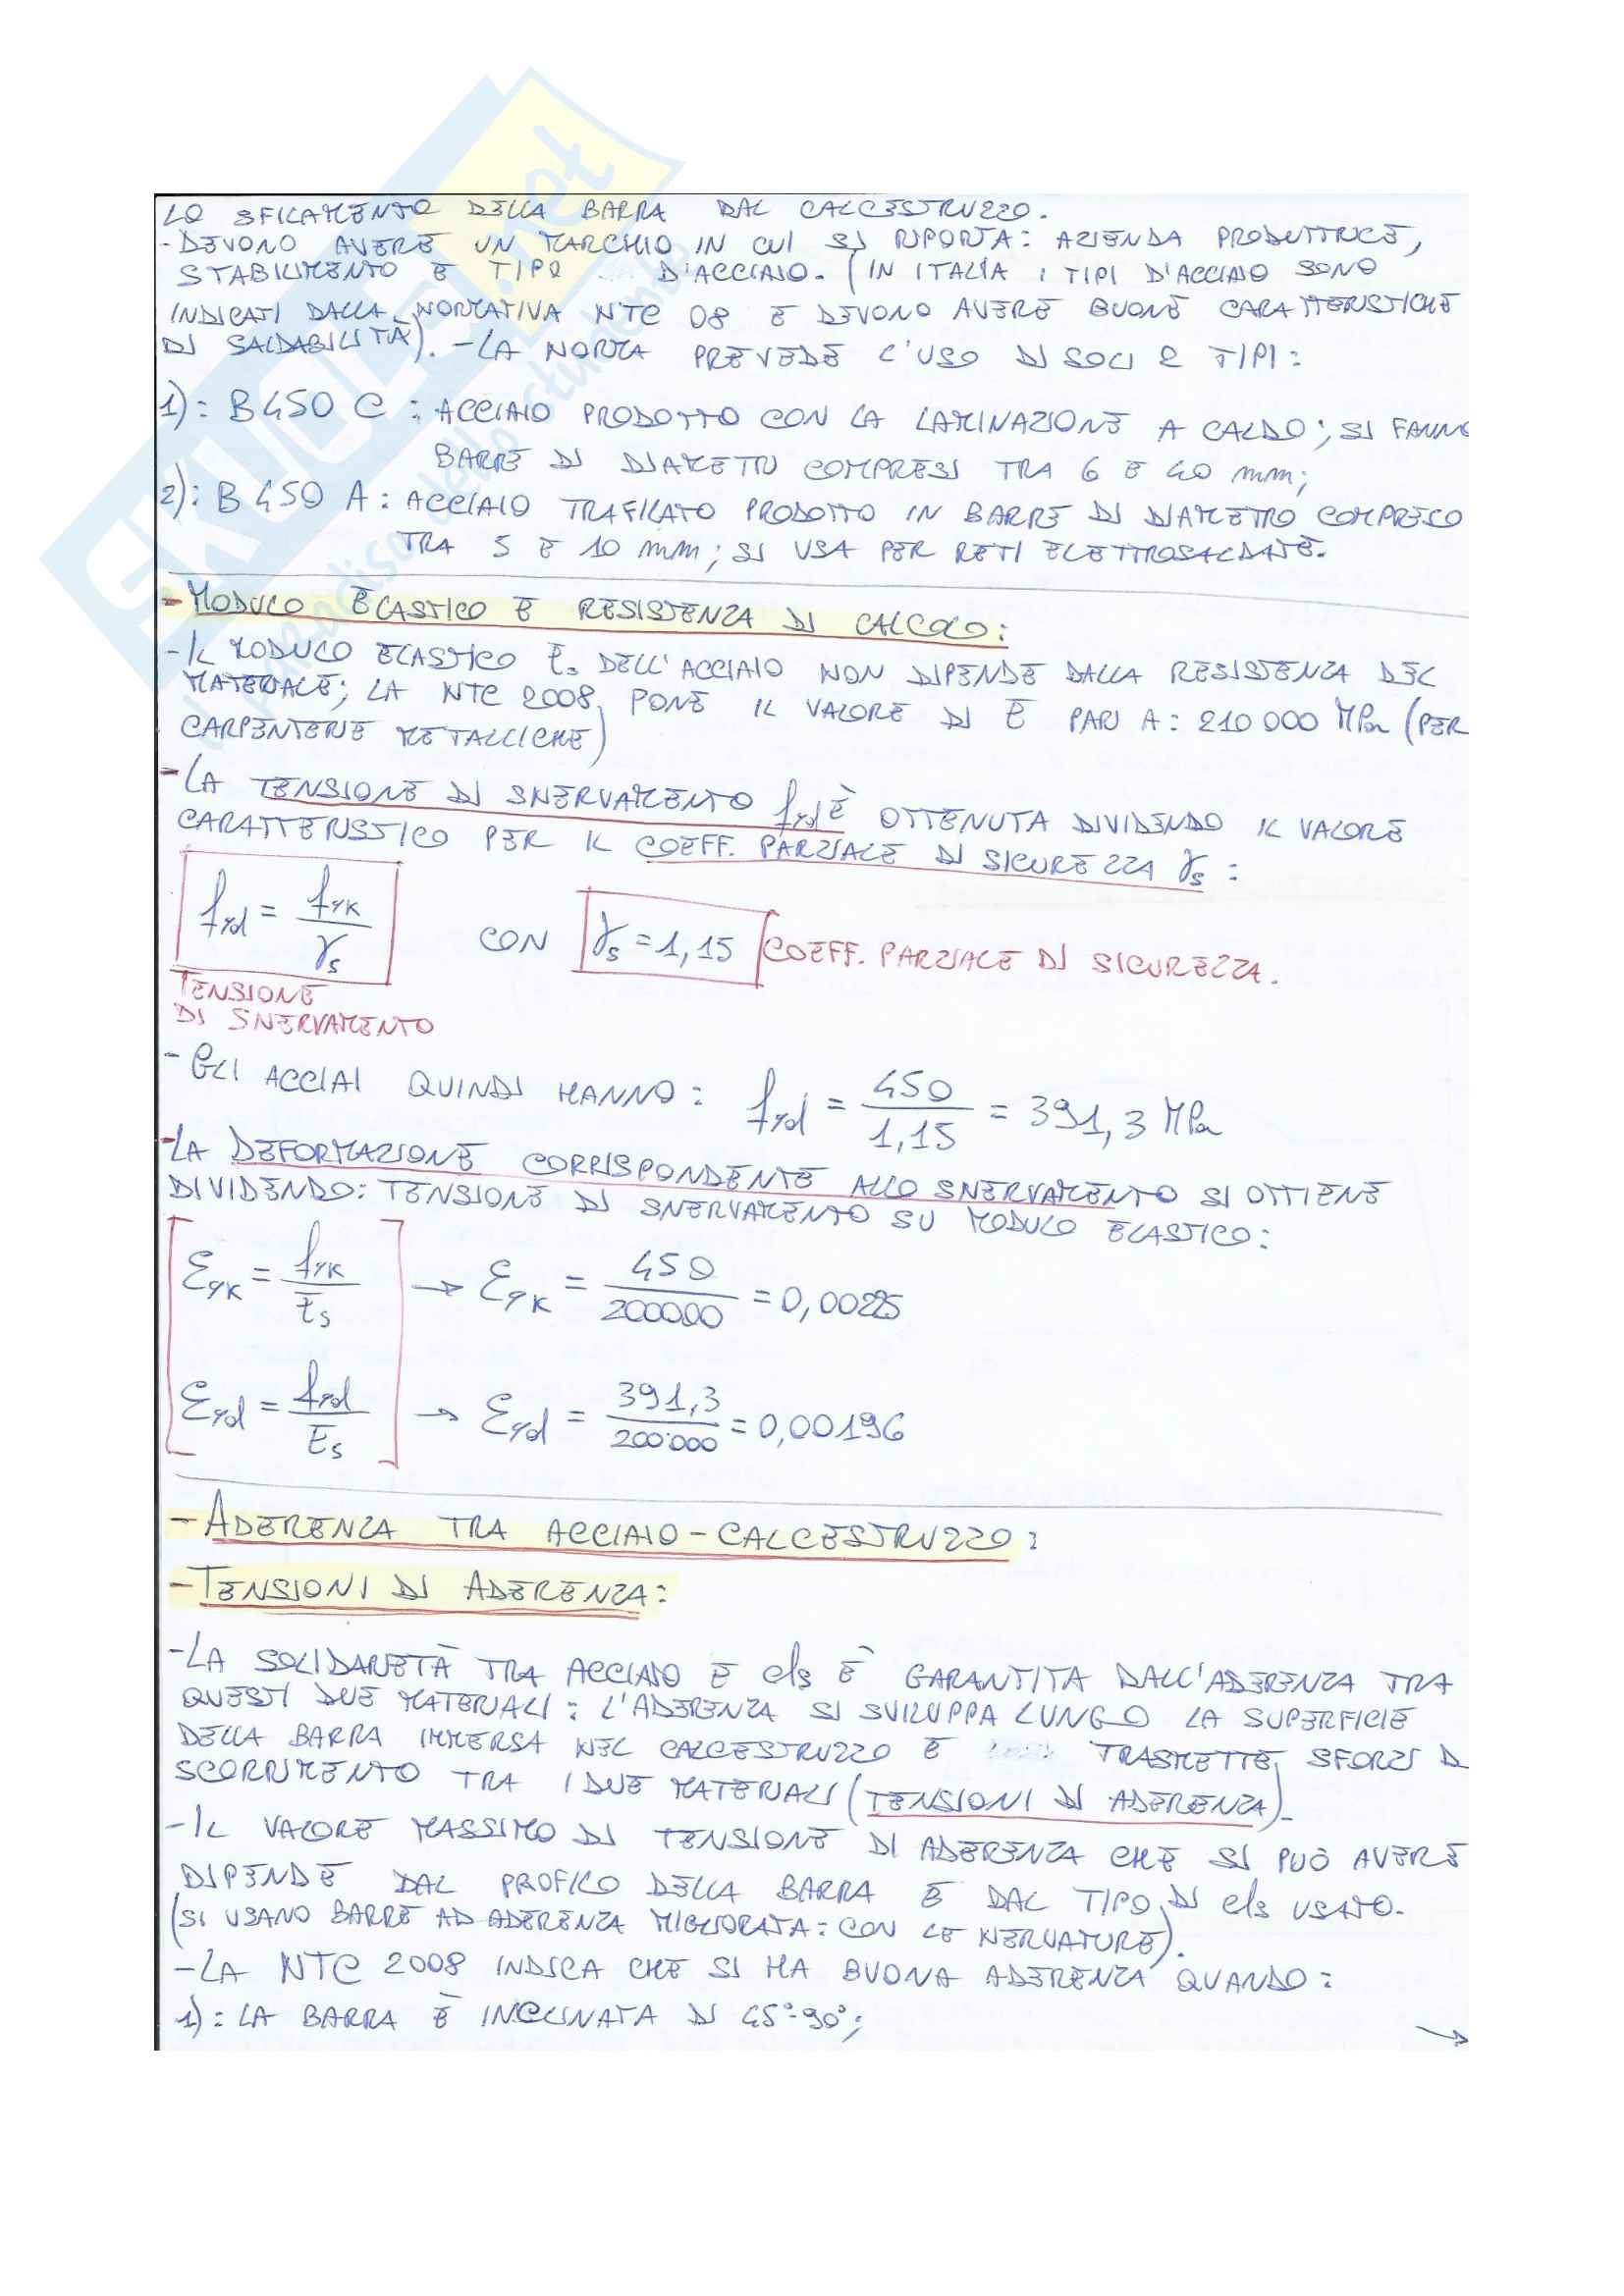 LO SFILAMENTO DELLA BARRA DAL CALCESTRUZZO.
- DEVONO AVERE UN MARCHIO IN CUI SI RIPORTA: AZIENDA PRODUTTRICE,
STABILIMENTO E TIPO D'ACCIAIO. (IN ITALIA I TIPI D'ACCIAIO SONO
INDICATI DALLA NORMATIVA NTC 08 E DEVONO AVERE BUONE CARATTERISTICHE
DI SALDABILITÀ). - LA NORMA PREVEDE L'USO DI SOLI 2 TIPI:
1): B450 C : ACCIAIO PRODOTTO CON LA LAMINAZIONE A CALDO; SI FANNO
BARRE DI DIAMETRI COMPRESI TRA 6 E 40 mm;
2): B 450 A : ACCIAIO TRAFILATO PRODOTTO IN BARRE DI DIAMETRO COMPRESO
TRA 5 E 10 mm; SI USA PER RETI ELETTROSALDATE.
- MODULO ELASTICO E RESISTENZA DI CALCOLO:
- IL MODULO ELASTICO Es DELL'ACCIAIO NON DIPENDE DALLA RESISTENZA DEL
MATERIALE; LA NTC 2008 PONE IL VALORE DI E PARI A: 210 000 MPa (PER
CARPENTERIE METALLICHE)
- LA TENSIONE DI SNERVAMENTO fyd È OTTENUTA DIVIDENDO IL VALORE
CARATTERISTICO PER IL COEFF. PARZIALE DI SICUREZZA γs :
fyd = fyk / γs CON γs = 1,15 COEFF. PARZIALE DI SICUREZZA.
TENSIONE
DI SNERVAMENTO
- GLI ACCIAI QUINDI HANNO: fyd = 450 / 1,15 = 391,3 MPa
- LA DEFORMAZIONE CORRISPONDENTE ALLO SNERVAMENTO SI OTTIENE
DIVIDENDO: TENSIONE DI SNERVAMENTO SU MODULO ELASTICO:
εyk = fyk / Es → εyk = 450 / 200000 = 0,00225
εyd = fyd / Es → εyd = 391,3 / 200.000 = 0,00196
- ADERENZA TRA ACCIAIO - CALCESTRUZZO :
- TENSIONI DI ADERENZA:
- LA SOLIDARIETÀ TRA ACCIAIO E cls È GARANTITA DALL'ADERENZA TRA
QUESTI DUE MATERIALI : L'ADERENZA SI SVILUPPA LUNGO LA SUPERFICIE
DELLA BARRA IMMERSA NEL CALCESTRUZZO E TRASMETTE SFORZI D
SCORRIMENTO TRA I DUE MATERIALI (TENSIONI DI ADERENZA).
- IL VALORE MASSIMO DI TENSIONE DI ADERENZA CHE SI PUÒ AVERE
DIPENDE DAL PROFILO DELLA BARRA E DAL TIPO DI cls USATO.
(SI USANO BARRE AD ADERENZA MIGLIORATA: CON LE NERVATURE).
- LA NTC 2008 INDICA CHE SI HA BUONA ADERENZA QUANDO :
1): LA BARRA È INCLINATA DI 45°-90°;
→
SKUOLA.net
il paradiso dello studente